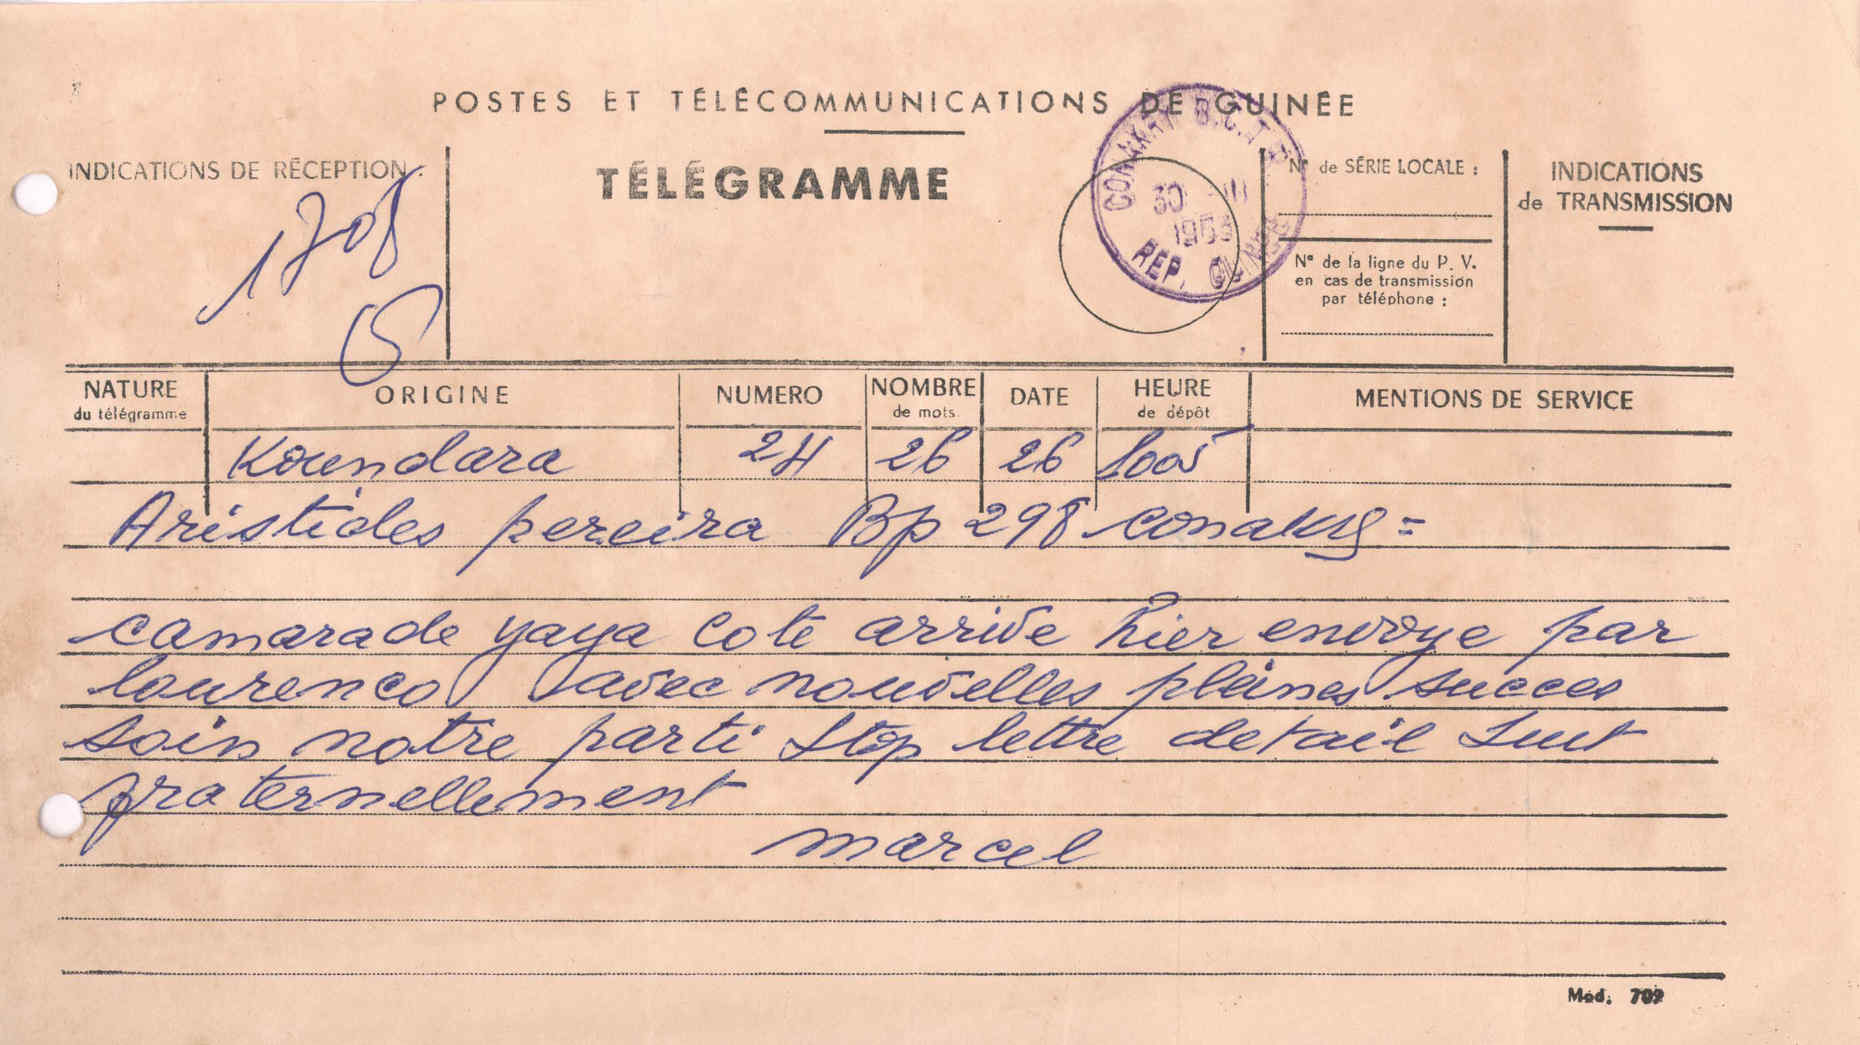 POSTES ET TÉLÉCOMMUNICATIONS DE GUINÉE
INDICATIONS DE RÉCEPTION :
1708
TÉLÉGRAMME
CONAKRY B.C.T.
30 III
1963
REP. GUINÉE
N° de SÉRIE LOCALE :
N° de la ligne du P. V.
en cas de transmission
par téléphone :
INDICATIONS
de TRANSMISSION
NATURE
du télégramme
ORIGINE
NUMERO
NOMBRE
de mots
DATE
HEURE
de dépôt
MENTIONS DE SERVICE
Koundara 24 26 26 1005
Aristides pereira Bp 298 conakry =
camarade yaya cote arrive hier envoye par
lourenco avec nouvelles pleines succes
soin notre parti stop lettre detail suit
fraternellement
marcel
Mod. 709